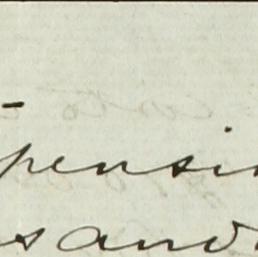 pensi
s and